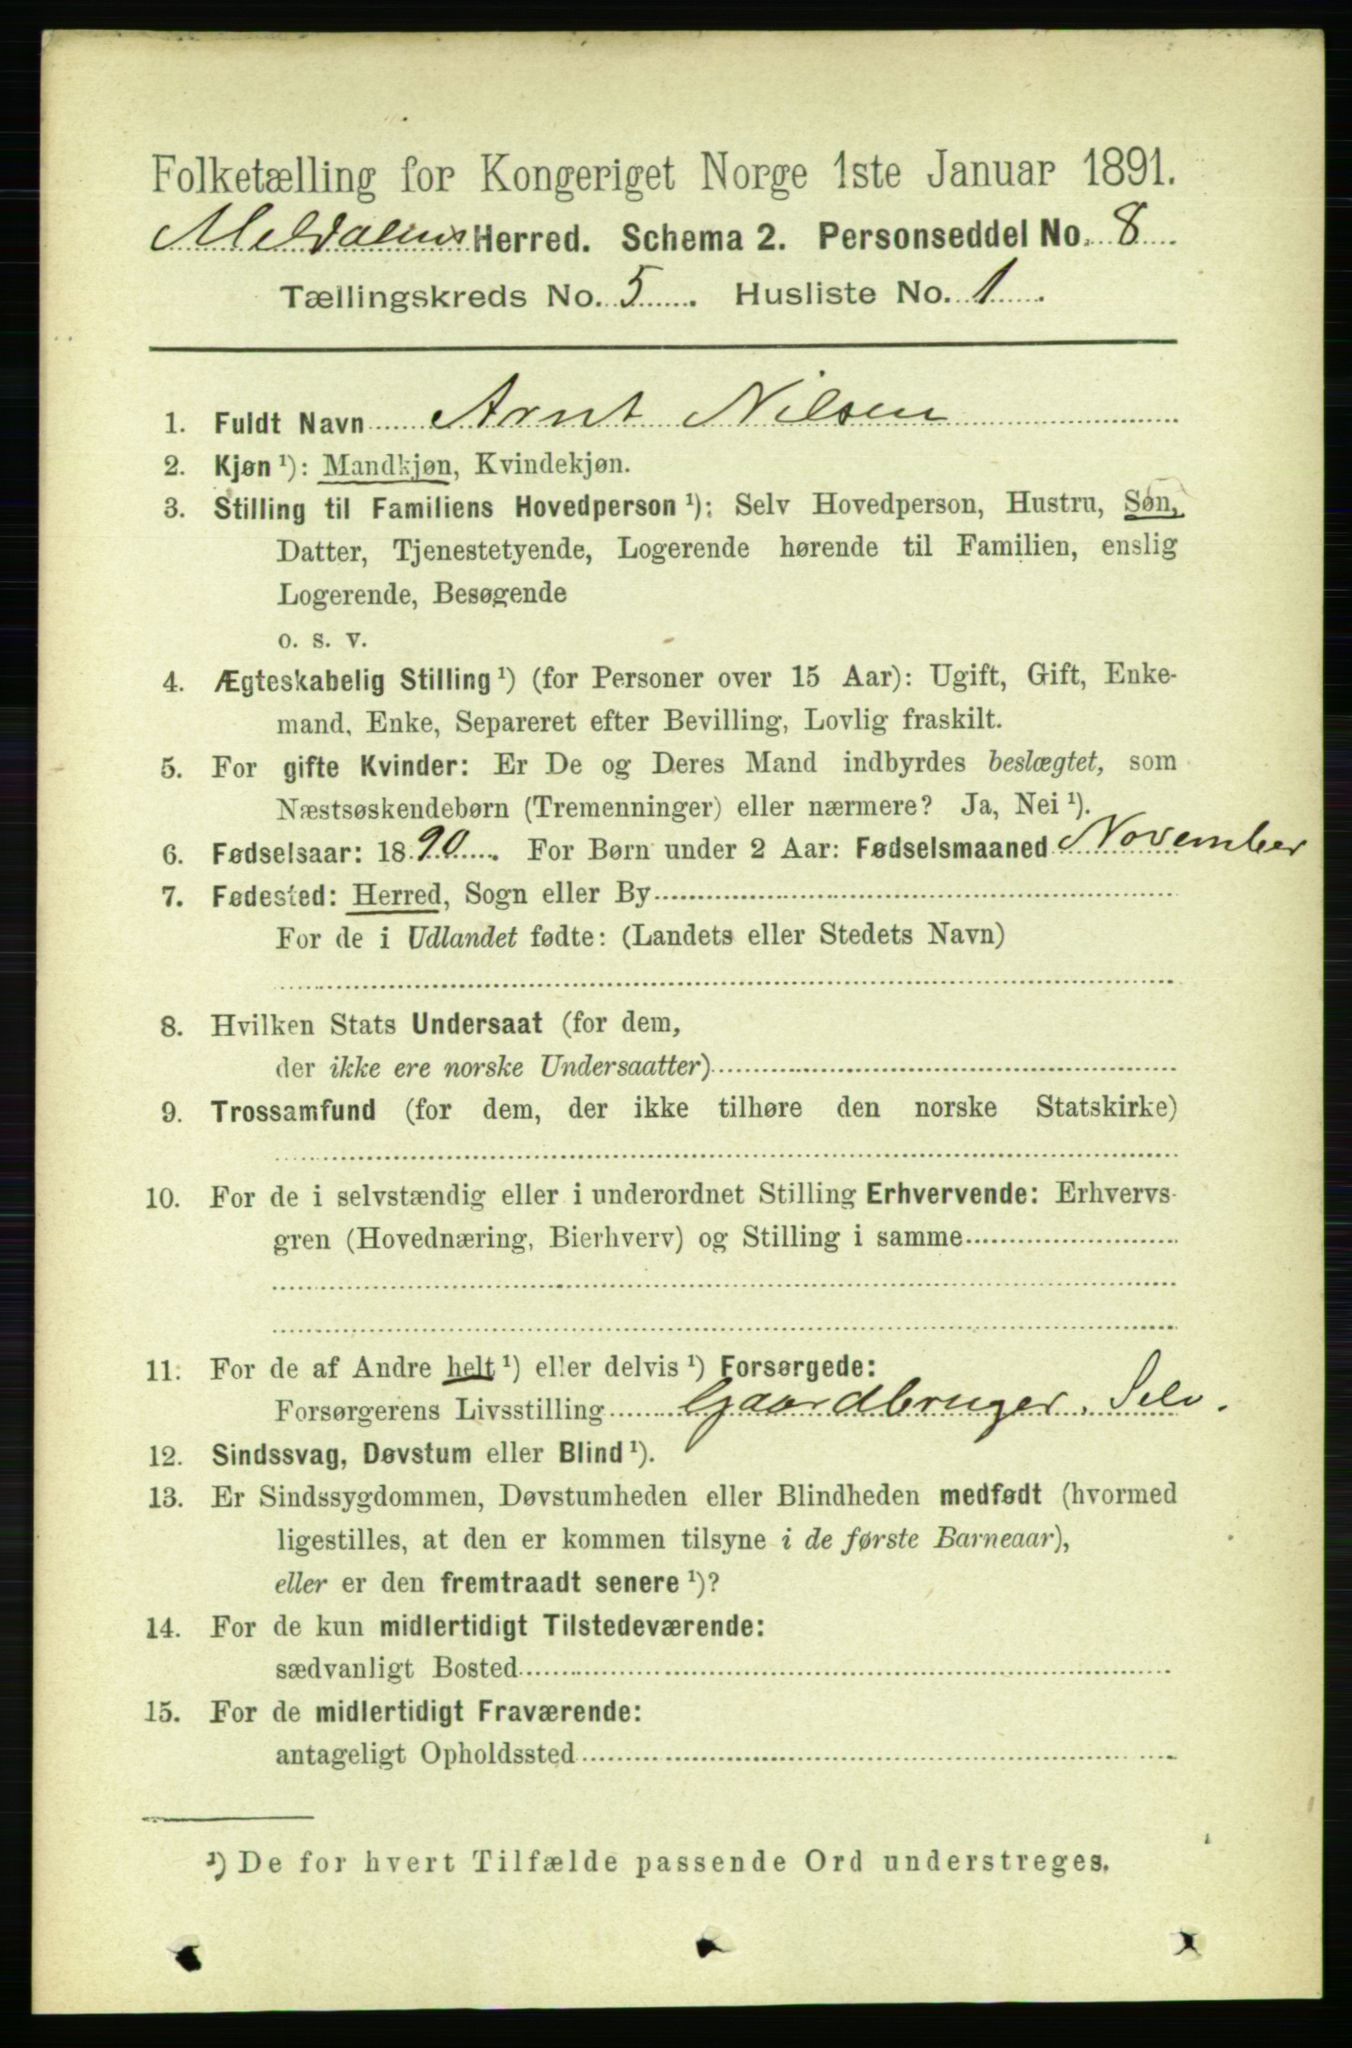 Folketælling for Kongeriget Norge 1ste Januar 1891.
Meldalens Herred. Schema 2. Personseddel No. 8
Tællingskreds No. 5. Husliste No. 1.
1. Fuldt Navn Arnt Nilsen
2. Kjøn ¹): Mandkjøn, Kvindekjøn.
3. Stilling til Familiens Hovedperson ¹): Selv Hovedperson, Hustru, Søn,
Datter, Tjenestetyende, Logerende hørende til Familien, enslig
Logerende, Besøgende
o. s. v.
4. Ægteskabelig Stilling ¹) (for Personer over 15 Aar): Ugift, Gift, Enke-
mand, Enke, Separeret efter Bevilling, Lovlig fraskilt.
5. For gifte Kvinder: Er De og Deres Mand indbyrdes beslægtet, som
Næstsøskendebørn (Tremenninger) eller nærmere? Ja, Nei ¹).
6. Fødselsaar: 1890. For Børn under 2 Aar: Fødselsmaaned November
7. Fødested: Herred, Sogn eller By
For de i Udlandet fødte: (Landets eller Stedets Navn)
8. Hvilken Stats Undersaat (for dem,
der ikke ere norske Undersaatter)
9. Trossamfund (for dem, der ikke tilhøre den norske Statskirke)
10. For de i selvstændig eller i underordnet Stilling Erhvervende: Erhvervs-
gren (Hovednæring, Bierhverv) og Stilling i samme
11. For de af Andre helt ¹) eller delvis ¹) Forsørgede:
Forsørgerens Livsstilling Gaardbruger. Selv.
12. Sindssvag, Døvstum eller Blind ¹).
13. Er Sindssygdommen, Døvstumheden eller Blindheden medfødt (hvormed
ligestilles, at den er kommen tilsyne i de første Barneaar),
eller er den fremtraadt senere ¹)?
14. For de kun midlertidigt Tilstedeværende:
sædvanligt Bosted
15. For de midlertidigt Fraværende:
antageligt Opholdssted
¹) De for hvert Tilfælde passende Ord understreges.